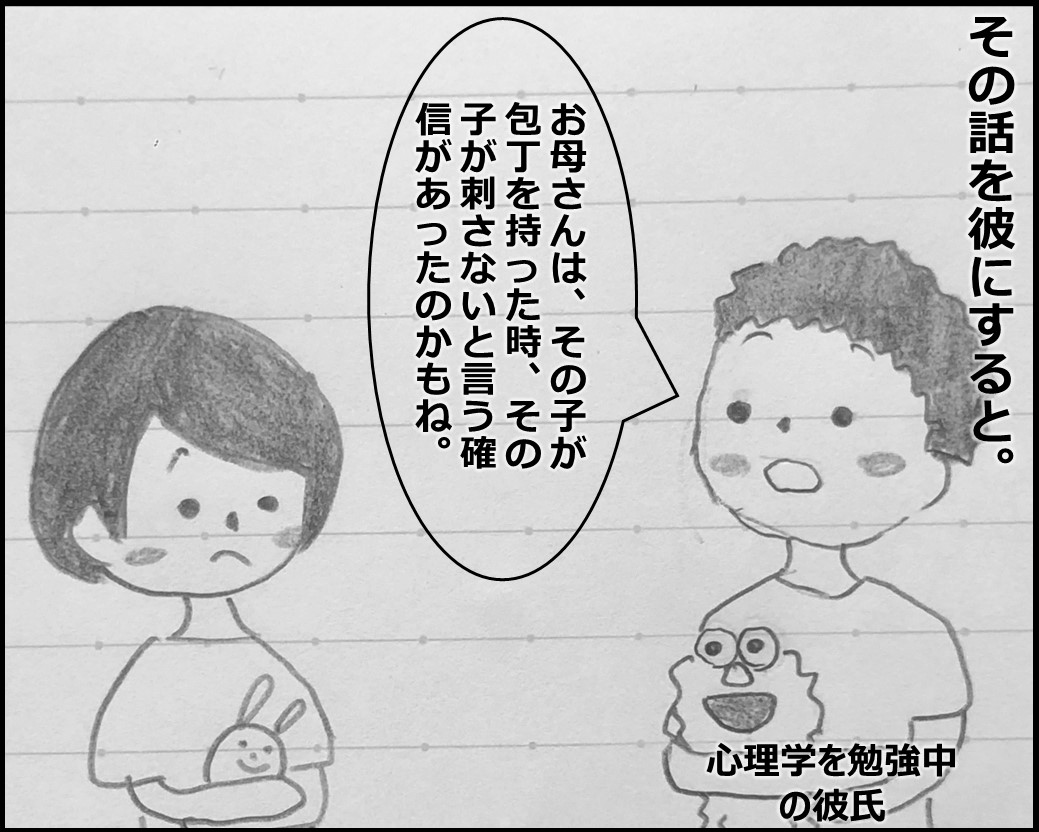 その話を彼にすると。
お母さんは、その子が
包丁を持った時、その
子が刺さないと言う確
信があったのかもね。
心理学を勉強中
の彼氏